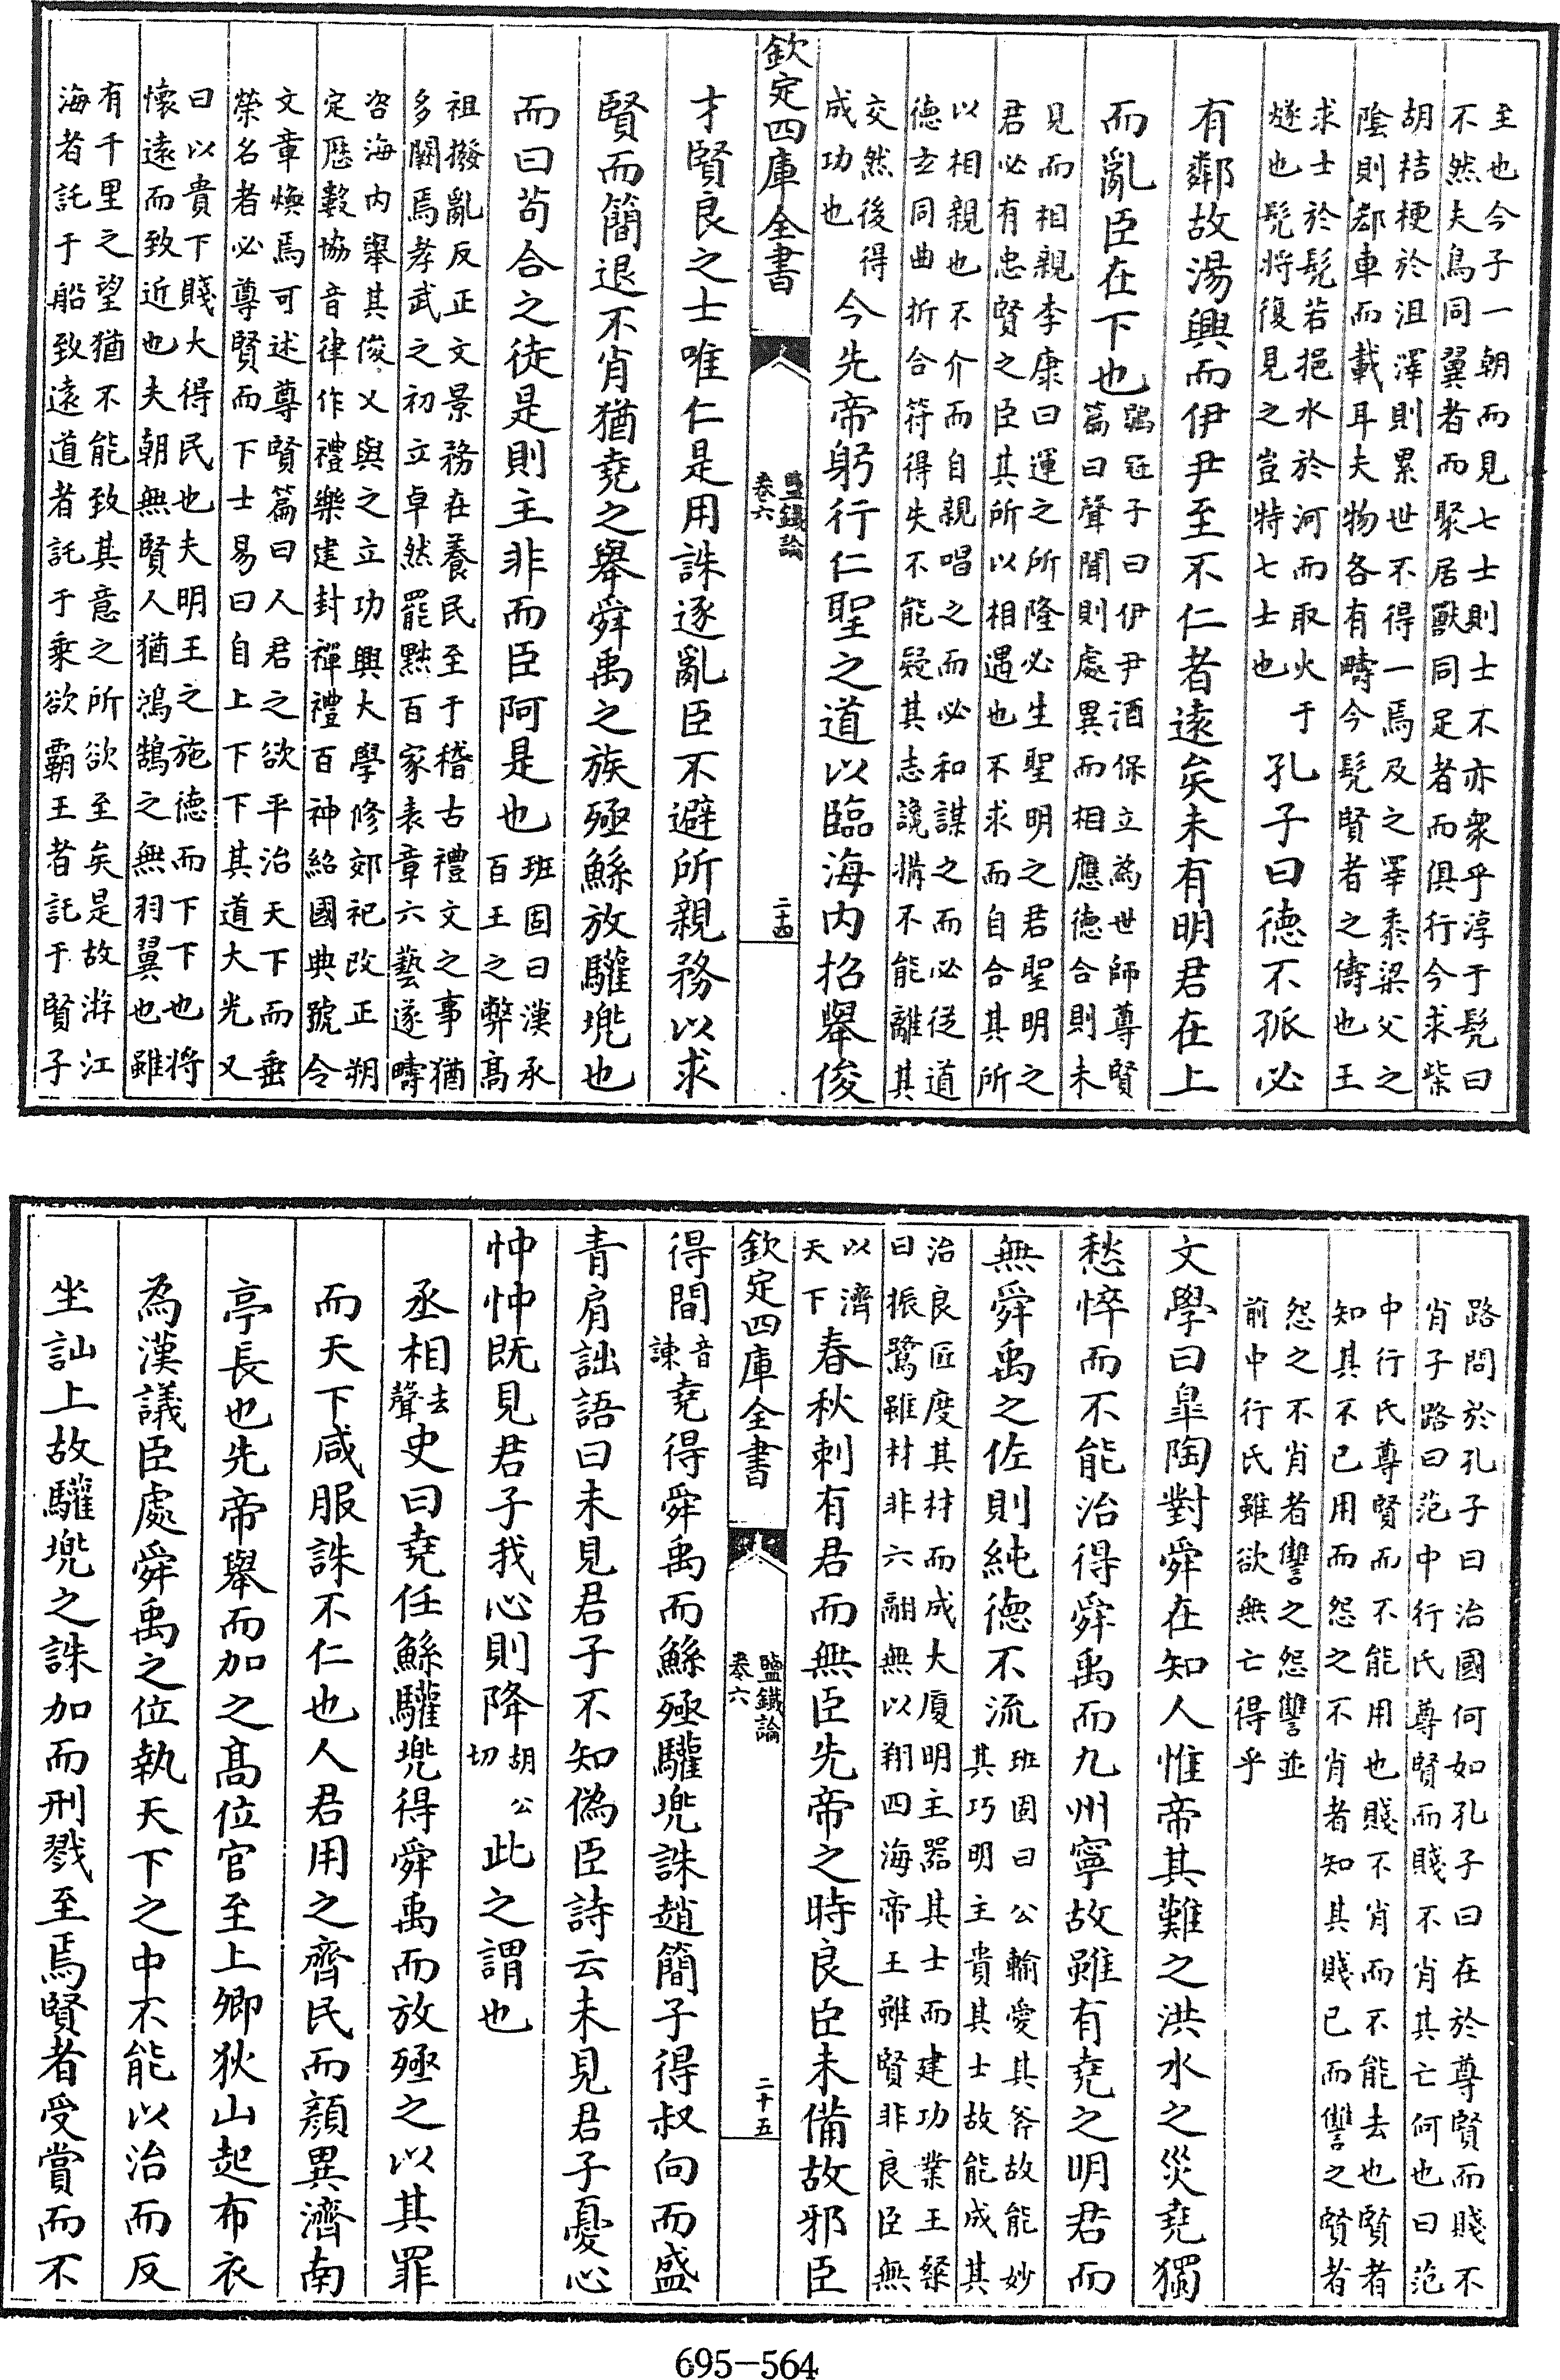 至也今子一朝而見七士則士不亦衆乎淳于髡曰
不然夫鳥同翼者而聚居獸同足者而俱行今求柴
胡桔梗於沮澤則累世不得一焉及之睪黍梁父之
陰則郄車而載耳夫物各有疇今髡賢者之儔也王
求士於髡若挹水於河而取火于
燧也髡將復見之豈特七士也
孔子曰德不孤必
有鄰故湯興而伊尹至不仁者遠矣未有明君在上
而亂臣在下也
鶡冠子曰伊尹酒保立為世師尊賢
篇曰聲聞則處異而相應德合則未
見而相親李康曰運之所隆必生聖明之君聖明之
君必有忠賢之臣其所以相遇也不求而自合其所
以相親也不介而自親唱之而必和謀之而必從道
德玄同曲折合符得失不能疑其志讒構不能離其
交然後得
成功也
今先帝躬行仁聖之道以臨海内招舉俊
欽定四庫全書
鹽鐵論
卷六
二十四
才賢良之士唯仁是用誅逐亂臣不避所親務以求
賢而簡退不肖猶堯之舉舜禹之族殛鯀放驩兜也
而曰苟合之徒是則主非而臣阿是也
班固曰漢承
百王之弊高
祖撥亂反正文景務在養民至于稽古禮文之事猶
多闕焉孝武之初立卓然罷黜百家表章六藝遂疇
咨海内舉其俊乂與之立功興大學修郊祀改正朔
定歴數協音律作禮樂建封禪禮百神紹國典號令
文章煥焉可述尊賢篇曰人君之欲平治天下而垂
榮名者必尊賢而下士易曰自上下下其道大光又
曰以貴下賤大得民也夫明王之施德而下下也將
懷遠而致近也夫朝無賢人猶鴻鵠之無羽翼也雖
有千里之望猶不能致其意之所欲至矣是故游江
海者託于船致遠道者託于乘欲霸王者託于賢子
路問於孔子曰治國何如孔子曰在於尊賢而賤不
肖子路曰范中行氏尊賢而賤不肖其亡何也曰范
中行氏尊賢而不能用也賤不肖而不能去也賢者
知其不已用而怨之不肖者知其賤已而讐之賢者
怨之不肖者讐之怨讐並
前中行氏雖欲無亡得乎
文學曰皐陶對舜在知人惟帝其難之洪水之災堯獨
愁悴而不能治得舜禹而九州寧故雖有堯之明君而
無舜禹之佐則純德不流
班固曰公輸愛其斧故能妙
其巧明主貴其士故能成其
治良匠度其材而成大厦明主器其士而建功業王粲
曰振鷺雖材非六翮無以翔四海帝王雖賢非良臣無
以濟
天下
春秋刺有君而無臣先帝之時良臣未備故邪臣
欽定四庫全書
鹽鐵論
卷六
二十五
得間
音
諌
堯得舜禹而鯀殛驩兜誅趙簡子得叔向而盛
青肩詘語曰未見君子不知偽臣詩云未見君子憂心
忡忡既見君子我心則降
胡公
切
此之謂也
丞相
去
聲
史曰堯任鯀驩兜得舜禹而放殛之以其罪
而天下咸服誅不仁也人君用之齊民而顔異濟南
亭長也先帝舉而加之高位官至上卿狄山起布衣
為漢議臣處舜禹之位執天下之中不能以治而反
坐訕上故驩兜之誅加而刑戮至焉賢者受賞而不
695-564